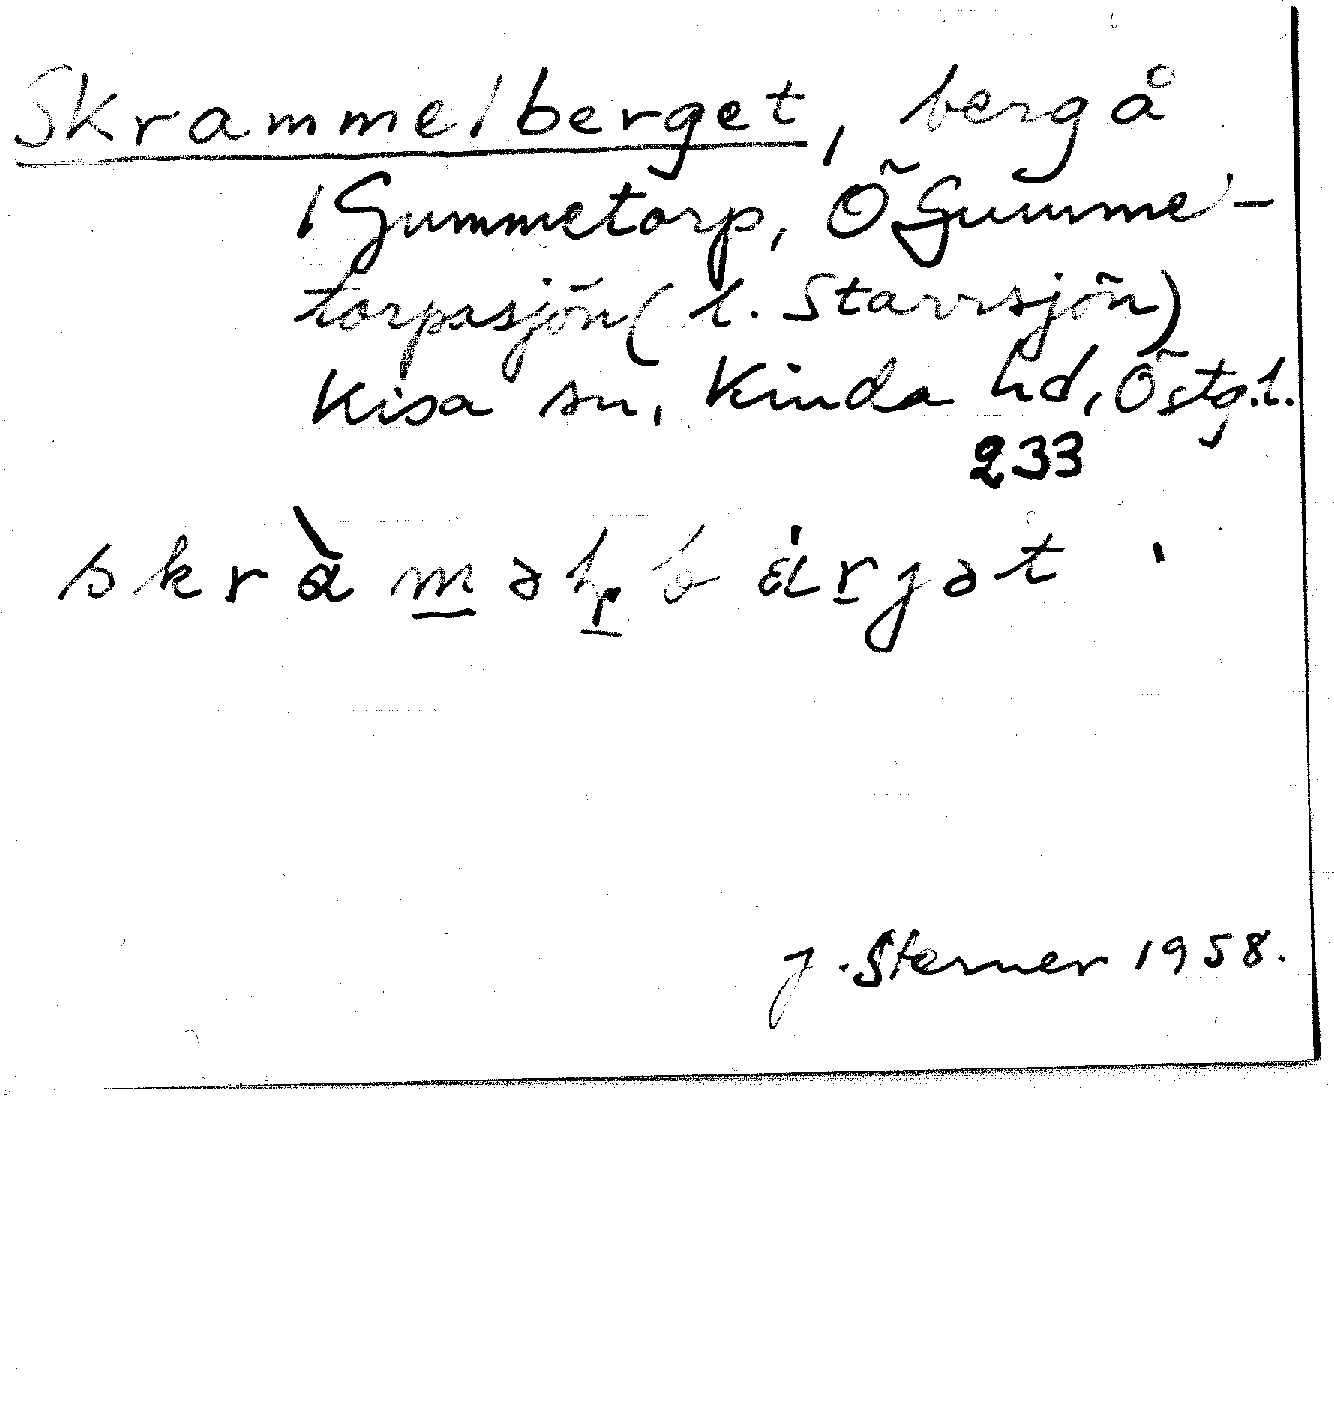 Skrammelberget, bergå
i Gummetorp, Ö Gumme-
torpasjön (l. Starrsjön)
Kisa sn, Kinda hd, Östg.l.
233
J. Sterner 1958.